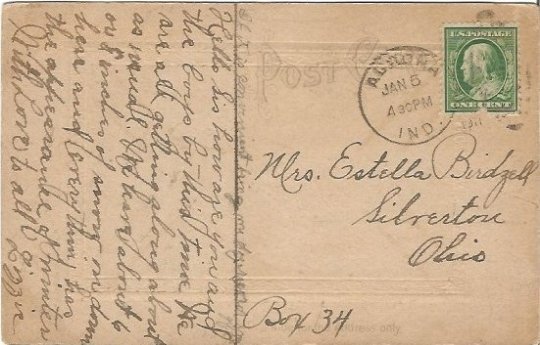 POST C
AURORA
JAN 5
4 30 PM
IND.
U.S. POSTAGE
ONE CENT
Mrs. Estella Birdzell
Silverton
Ohio
Box 34
address only
Hello Sis how are you and
the boys by this time We
are all getting along about
as usual. We have about 6
or 8 inches of snow on down
here and everything has
the appearance of winter
With Love to all Lizzie